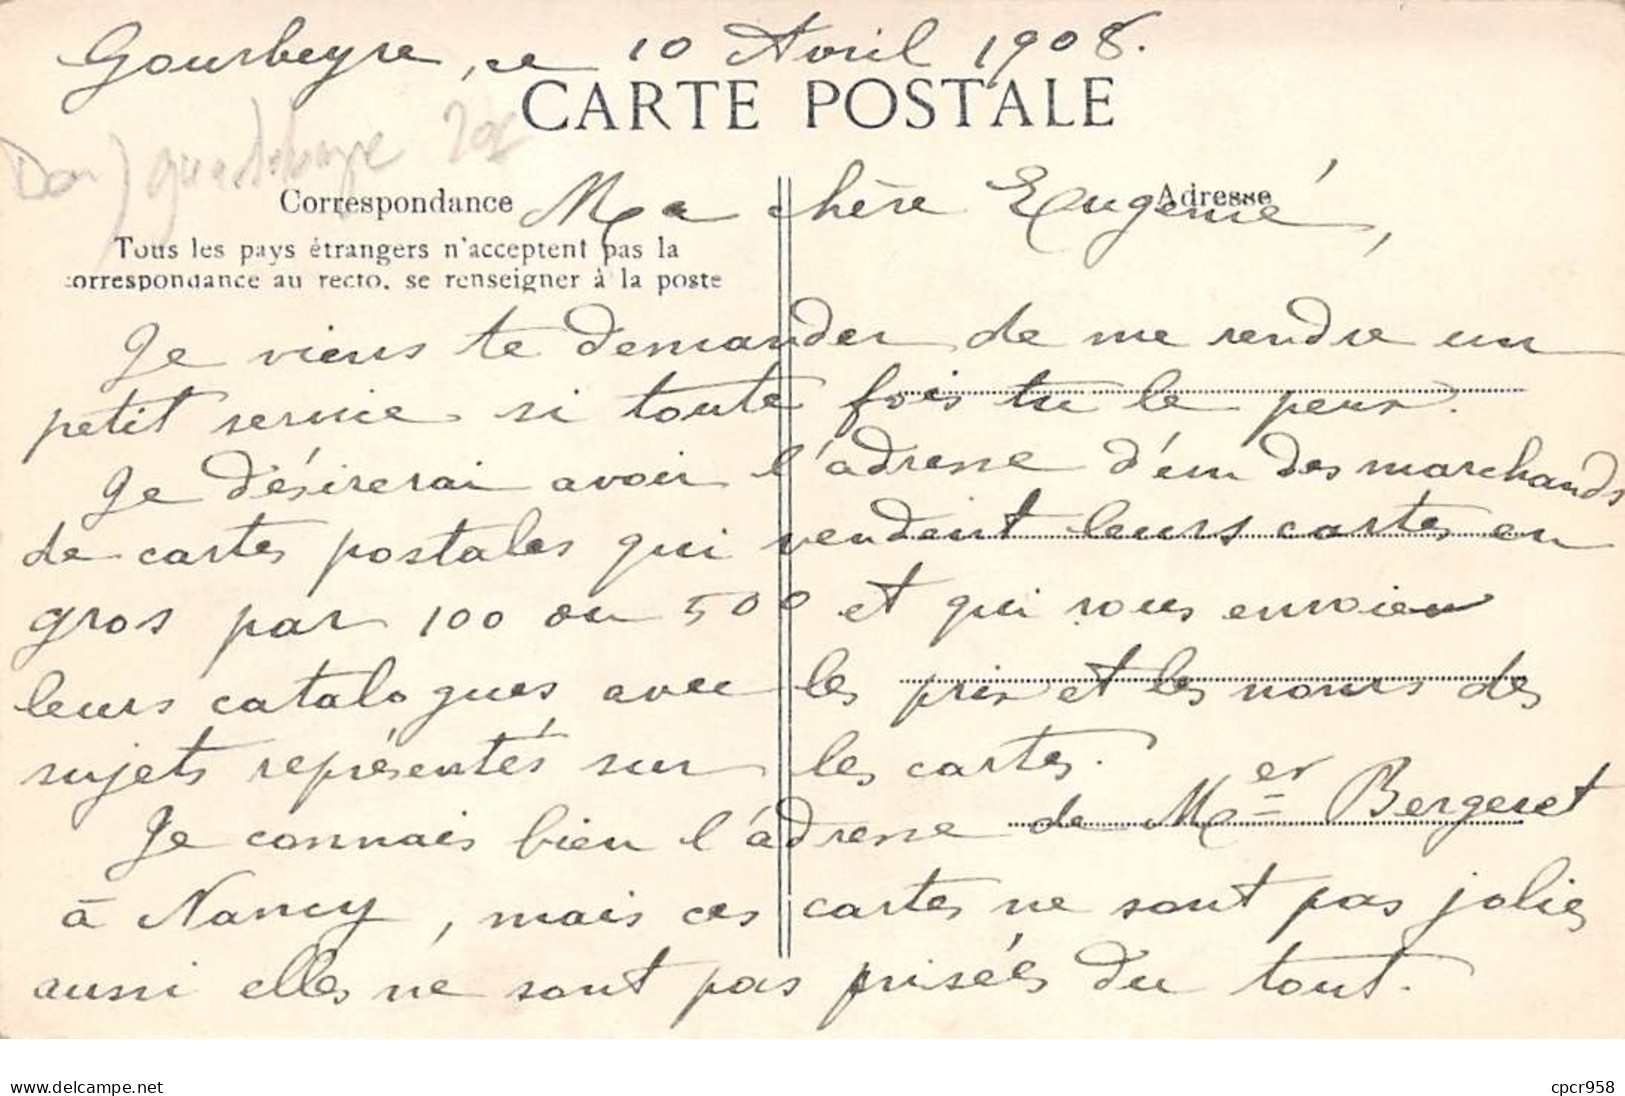 Gourbeyre, ce 10 Avril 1908.
CARTE POSTALE
Guadeloupe
Correspondance
Adresse
Ma chère Eugénie,
Tous les pays étrangers n'acceptent pas la
correspondance au recto, se renseigner à la poste
Je viens te demander de me rendre un
petit service si toute fois tu le peux.
Je désirerai avoir l'adresse d'un des marchands
de cartes postales qui vendent leurs cartes en
gros par 100 ou 500 et qui vous envoient
leurs catalogues avec les prix et les noms des
sujets représentés sur les cartes.
Je connais bien l'adresse de Mer Bergeret
à Nancy, mais ces cartes ne sont pas jolies
aussi elles ne sont pas prisées du tout.
www.delcampe.net
cpcr958